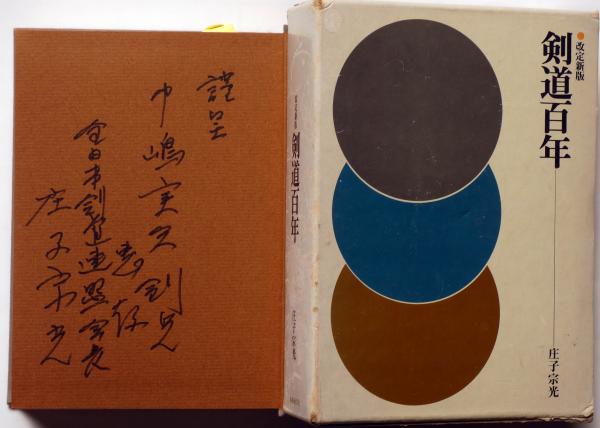 謹呈
中嶋実久剣兄
恵存
全日本剣道連盟会長
庄子宗光
改定新版
剣道百年
庄子宗光
改定新版
剣道百年
庄子宗光